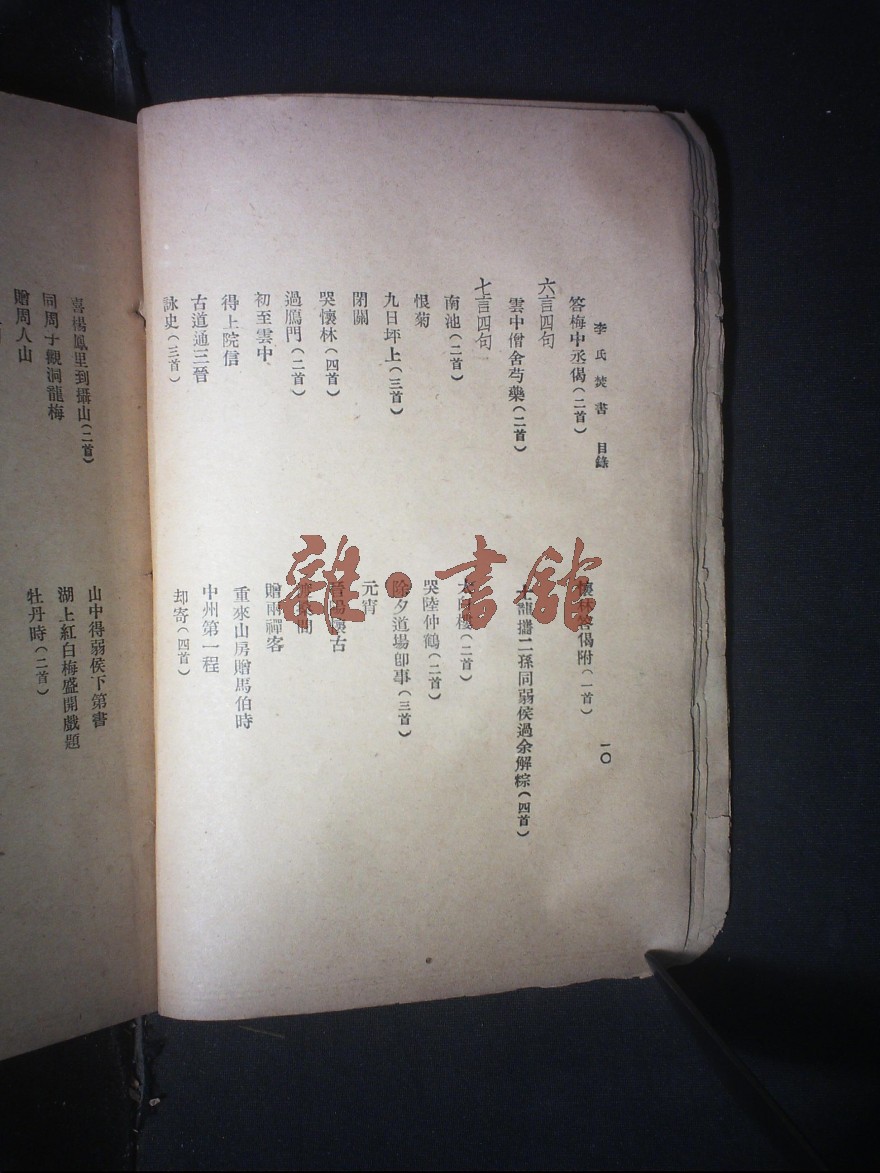 李氏焚書 目錄 一〇
答梅中丞偈(二首) 懷林答偈附(一首)
六言四句
雲中僧舍芍藥(二首) 龍攜二孫同弱侯過余解粽(四首)
七言四句
南池(二首) 太白樓(二首)
恨菊 哭陸仲鶴(二首)
九日坪上(三首) 除夕道場卽事(三首)
閉關 元宵
哭懷林(四首) 晉陽懷古
過鴈門(二首) 間
初至雲中 贈兩禪客
得上院信 重來山房贈馬伯時
古道通三晉 中州第一程
詠史(三首) 却寄(四首)
喜楊鳳里到攝山(二首) 山中得弱侯下第書
同周子觀洞龍梅 湖上紅白梅盛開戲題
贈周人山 牡丹時(二首)
雜·書舘